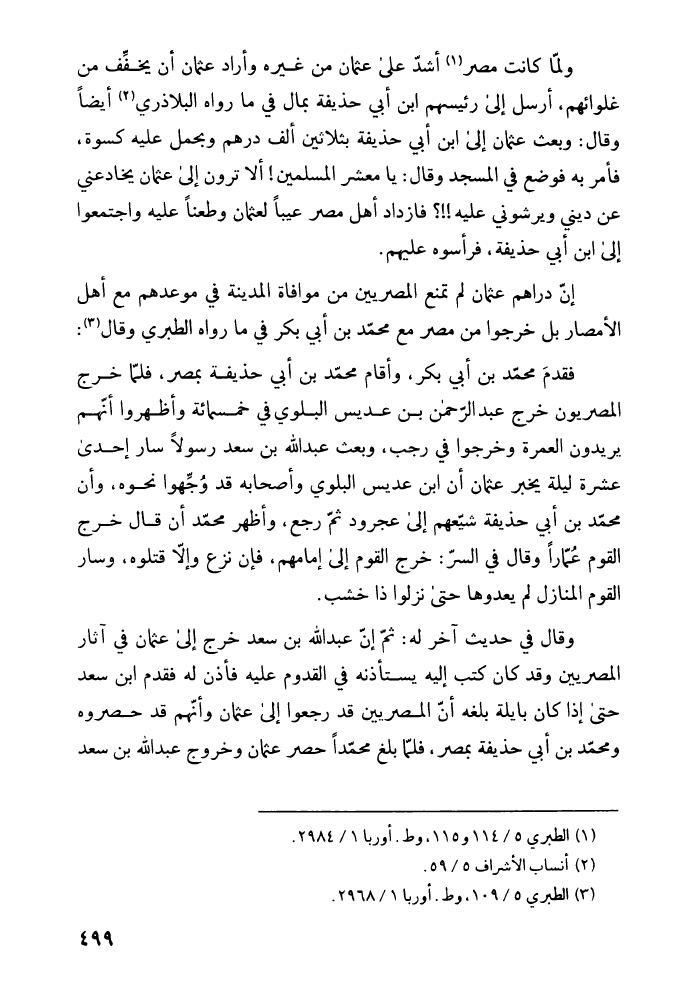 ولمّا كانت مصر(١) أشدّ علىٰ عثمان من غـيره وأراد عثمان أن يخـفِّف من
غلوائهم، أرسل إلىٰ رئيسهم ابن أبي حذيفة بمال في ما رواه البلاذري(٢) أيضاً
وقال: وبعث عثمان إلىٰ ابن أبي حذيفة بثلاثين ألف درهم وبحمل عليه كسوة،
فأمر به فوضع في المسجد وقال: يا معشر المسلمين! ألا ترون إلىٰ عثمان يخادعني
عن ديني ويرشوني عليه !!؟ فازداد أهل مصر عيباً لعثمان وطعناً عليه واجتمعوا
إلىٰ ابن أبي حذيفة، فرأسوه عليهم.
إنّ دراهم عثمان لم تمنع المصريين من موافاة المدينة في موعدهم مع أهل
الأمصار بل خرجوا من مصر مع محمّد بن أبي بكر في ما رواه الطبري وقال(٣):
فقدمَ محمّد بن أبي بكر، وأقام محمّد بن أبي حذيفـة بمصر، فلمّا خـرج
المصريون خرج عبدالرّحمٰن بـن عـديس البـلوي في خمـسمائة وأظـهروا أنّهـم
يريدون العمرة وخرجوا في رجب، وبعث عبدالله بن سعد رسولاً سار إحـدىٰ
عشرة ليلة يخبر عثمان أن ابن عديس البلوي وأصحابه قد وُجِّهوا نحـوه، وأن
محمّد بن أبي حذيفة شيّعهم إلىٰ عجرود ثمّ رجع، وأظهر محمّد أن قـال خـرج
القوم عُمّاراً وقال في السرّ: خرج القوم إلىٰ إمامهم، فإن نزع وإلّا قتلوه، وسار
القوم المنازل لم يعدوها حتىٰ نزلوا ذا خشب.
وقال في حديث آخر له: ثمّ إنّ عبدالله بن سعد خرج إلىٰ عثمان في آثار
المصريين وقد كان كتب إليه يسـتأذنه في القدوم عليه فأذن له فقدم ابن سعد
حتىٰ إذا كان بايلة بلغه أنّ المـصريين قد رجعوا إلىٰ عثمان وأنّهم قد حـصروه
ومحمّد بن أبي حذيفة بمصر، فلمّا بلغ محمّداً حصر عثمان وخروج عبدالله بن سعد
(١) الطبري ٥ / ١١٤ و١١٥، وط. أوربا ١ / ٢٩٨٤.
(٢) أنساب الأشراف ٥ / ٥٩.
(٣) الطبري ٥ / ١٠٩، وط. أوربا ١ / ٢٩٦٨.
٤٩٩